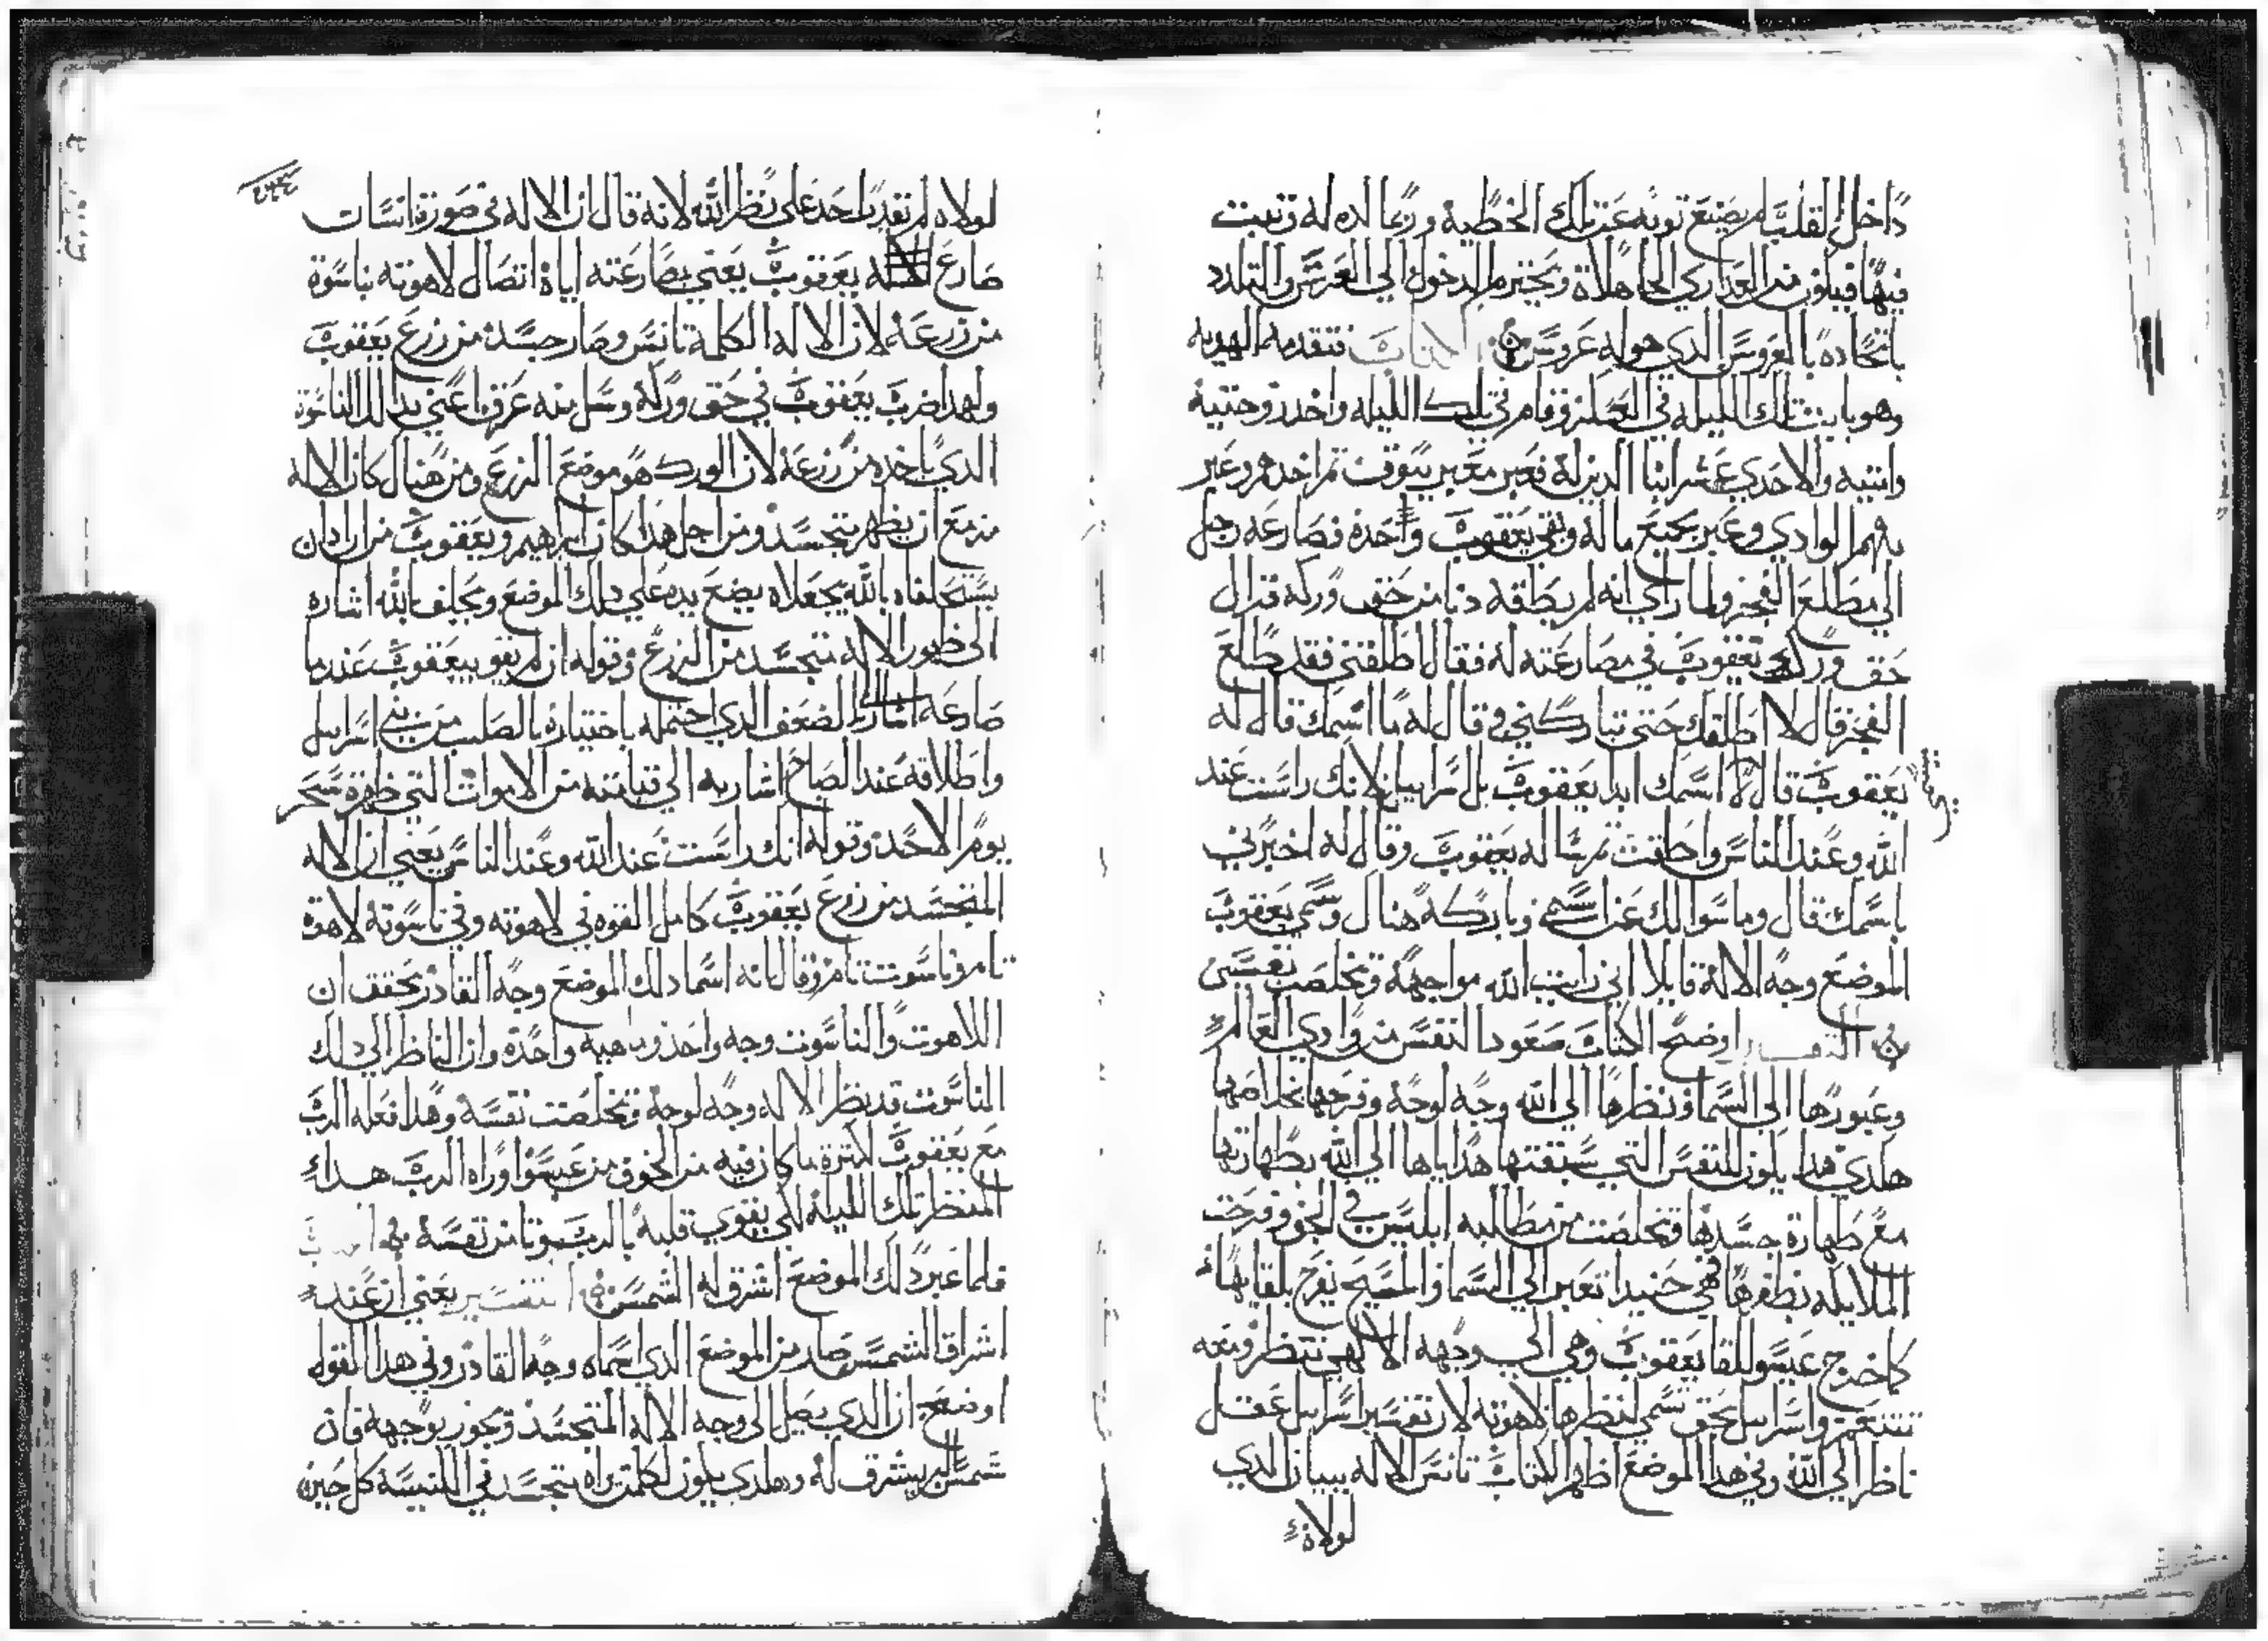 داخل القلب لم يصنع توبه عن تلك الخطيه وربما لده له وتبت
فيها فيكون من العداري الجاهلاة ويختبر من الدخول الي العرس والتلدد
باتحاده بالعروس الدي هو له عروس الكتاب فتقدمه الهديه
وهو بايت تلك الليله في العسكر وقام في تلك الليله واخد زوجتيه
وامتيه والاحدي عشر ابنا الدين له فعبر معبر يبوقت تم اخدهم وعبر
بهم الوادي وعبر بجميع ما له وبقي يعقوب واحده فصارعه رجل
الي مطلع الفجر ولما راي انه لم يطقه دنا من حق وركه فزال
حق ورك يعقوب في مصارعته له فقال اطلقني فقد طلع
الفجر قال لا اطلقك حتي تباركني وقال له ما اسمك قال له
يعقوب قال لا اسمك ابدا يعقوب بل اسراييل لانك راست عند
الله وعند الناس واطقت تم سا له يعقوب وقال له اخبرني
باسمك قال وما سوالك عن اسمي وباركه هناك وسمي يعقوب
الموضع وجه الاله قايلا اني رايت الله مواجهة وتخلصت نفسي
التفسير اوضح الكتاب صعود النفس من وادي العالم
وعبورها الي السما ونظرها الي الله وجه لوجه وفرحها بخلاصها
هلدي هدا يكون للنفس التي سبقتها هداياها الي الله بطهارتها
مع طهارة جسدها وتخلصت من مطالبه ابليس في الجو وفرحت
الملايكه بظفرها فهي حنيدا تعبر الي السما والمسيح يفرح بلقايها
كما خرج عيسو للقا يعقوب وهي الي وجهه الالهي تنتظر ومعه
تتنعم واسراييل بحق تسمي لنظرها لاهوته لان تفسير اسراييل عقل
ناظر الي الله وفي هدا الموضع اظهر الكتاب تانس الاله ببيان الدي
لولاه
لولاه لم يقدر احد علي نظر الله لانه قال ان الاله في صورة انسان
صارع يعقوب يعني بمصارعته اياه اتصال لاهوته بناسوة
من زرعه لان الاله الكلمة تانس وصار جسده من زرع يعقوب
ولهدا ضرب يعقوب في حق وركه وسل منه عرقا اعني بدلك الناسوة
الدي ياخده من زرعه لان الورك هو موضع الزرع ومن هناك كان الاله
مزمع ان يظهر بتجسد ومن اجل هدا كان ابرهيم ويعقوب من ارادان
يستحلفاه بالله يجعلاه يضع يده علي دلك الموضع ويحلف بالله اشاره
الي ظهور الاله متجسد من الزرع وقوله ان لم يقو بيعقوب عندما
صارعه اشار الي الضعف الدي احتمله باختياره بالصلب من بني اسراييل
واطلاقه عند الصباح اشار به الي قيامته من الاموات التي ظهرة سحر
يوم الاحد وقوله انك راست عند الله وعند الناس يعني ان الاله
المتجسد من زرع يعقوب كامل القوه في لاهوته وفي ناسوته لاهوة
تام وناسوت تام وقال انه اسما دلك الموضع وجه القادر تحقق ان
اللاهوت والناسوت وجه واحد وماهية واحدة وان الناظر الي دلك
الناسوت قد نظر الاله وجه لوجه وتخلصت نفسه وهدا فعله الرب
مع يعقوب لكترة ما كان فيه من الخوف من عيسو اوراه الرب هدا
المنظر تلك الليلة لكي يقوي قلبه بالرب وتامن نفسه
فلما عبر دلك الموضع اشرق له الشمس التفسير يعني ان عند
اشراق الشمس صار من الموضع الدي اسماه وجه القادر وفي هدا القول
اوضح ان الدي يصل الي وجه الاله المتجسد ويجوز بوجهه فان
شمس البر يشرق له وهلدي يكون لكلمن يراه متجسد في الكنيسة كل حين